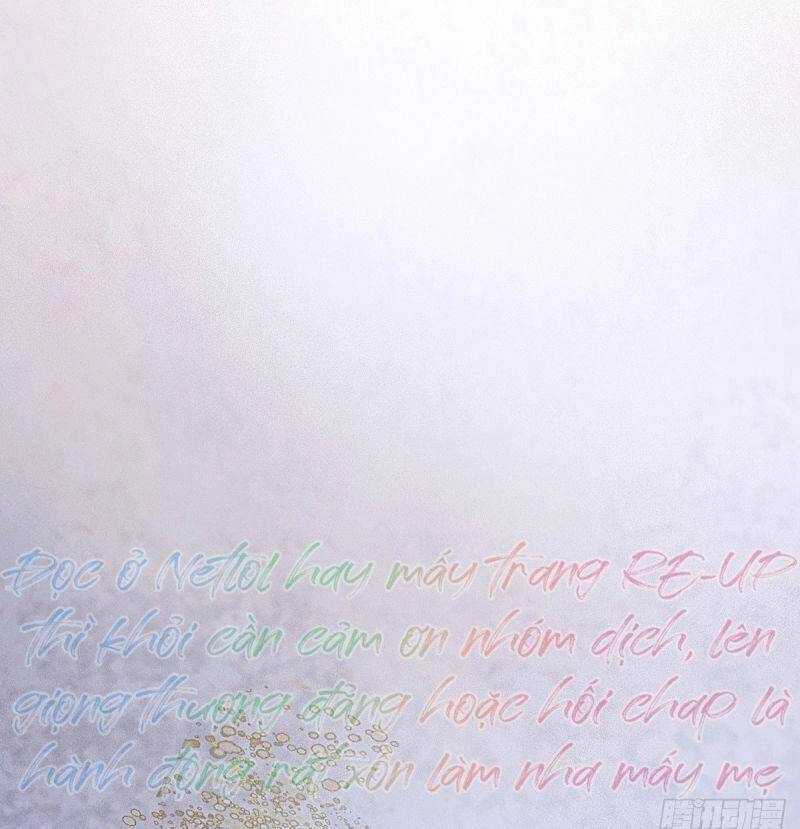 Đọc ở Netlol hay mấy trang RE-UP
thì khỏi cần cảm ơn nhóm dịch, lên
giọng thượng đẳng hoặc hối chap là
hành động rất xôn làm nha mấy mẹ
腾讯动漫